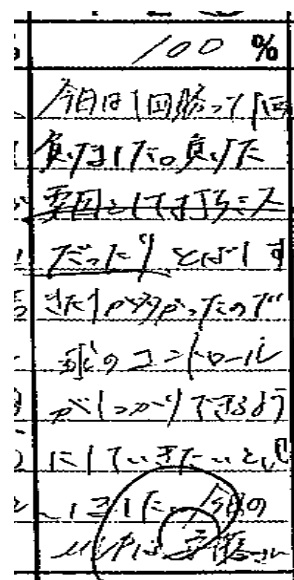 100 %
今日は1回勝って1回
負けました。負けた
要因としては打ちミス
だったり とばしす
ぎたりが多かったので
球のコントロール
がしっかりできるよう
にしていきたいと思
いました。今日の